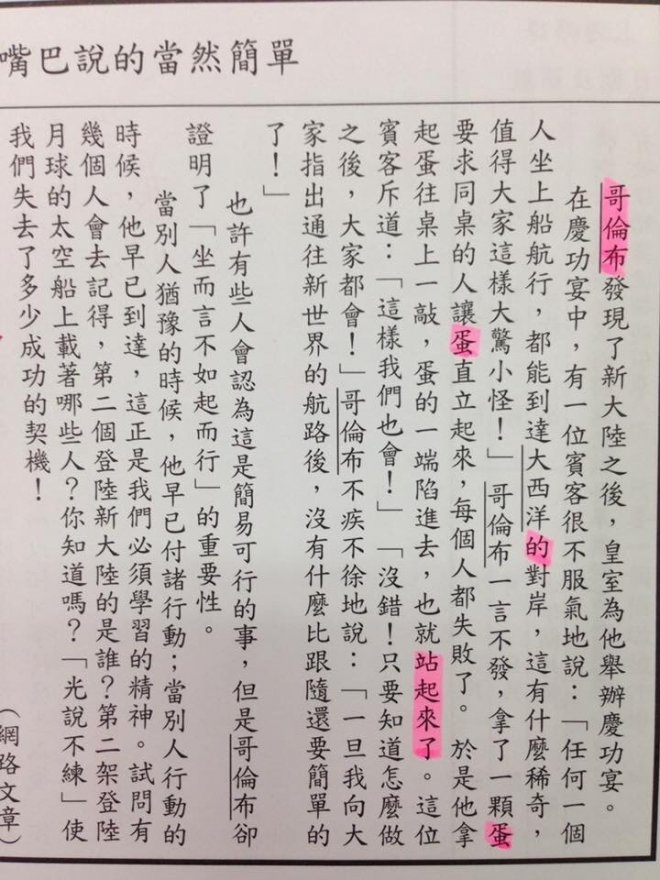 嘴巴說的當然簡單
哥倫布發現了新大陸之後，皇室為他舉辦慶功宴。
在慶功宴中，有一位賓客很不服氣地說：「任何一個
人坐上船航行，都能到達大西洋的對岸，這有什麼稀奇，
值得大家這樣大驚小怪！」哥倫布一言不發，拿了一顆蛋
要求同桌的人讓蛋直立起來，每個人都失敗了。於是他拿
起蛋往桌上一敲，蛋的一端陷進去，也就站起來了。這位
賓客斥道：「這樣我們也會！」「沒錯！只要知道怎麼做
之後，大家都會！」哥倫布不疾不徐地說：「一旦我向大
家指出通往新世界的航路後，沒有什麼比跟隨還要簡單的
了！」
也許有些人會認為這是簡易可行的事，但是哥倫布卻
證明了「坐而言不如起而行」的重要性。
當別人猶豫的時候，他早已付諸行動；當別人行動的
時候，他早已到達，這正是我們必須學習的精神。試問有
幾個人會去記得，第二個登陸新大陸的是誰？第二架登陸
月球的太空船上載著哪些人？你知道嗎？「光說不練」使
我們失去了多少成功的契機！
（網路文章）